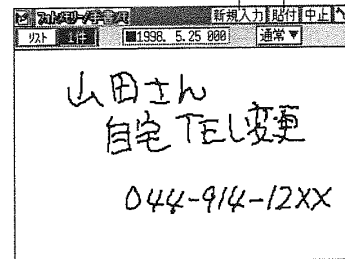 フォトメモリー/手書きメモ 新規入力 貼付 中止
リスト 1件 1998. 5.25 000 通常▼
山田さん
自宅TEL変更
044-914-12XX